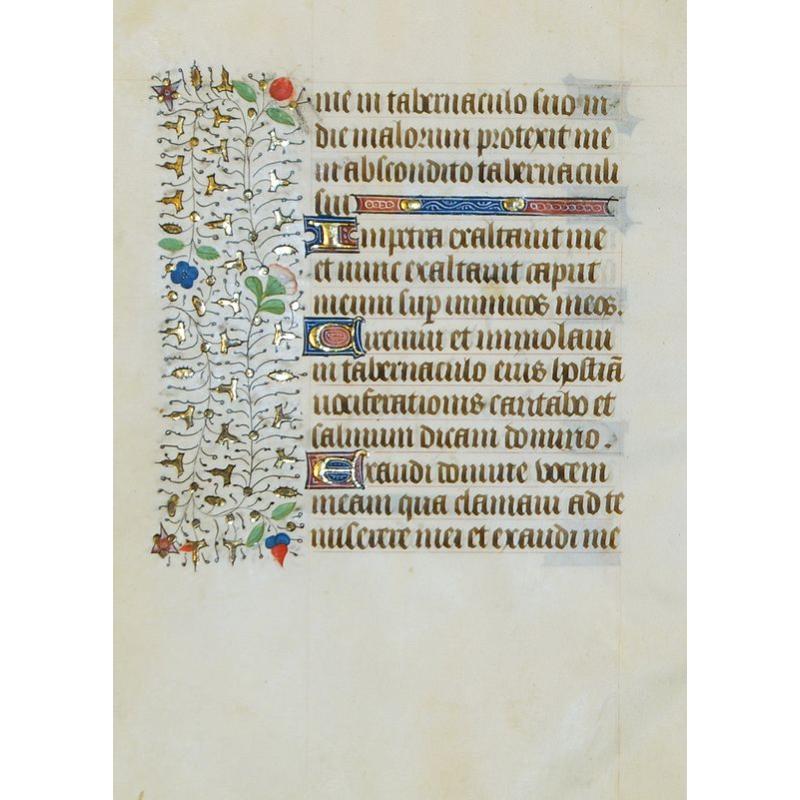 me in tabernaculo suo in
die malorum protexit me
in abscondito tabernaculi
sui
In petra exaltauit me
et nunc exaltauit caput
meum sup inimicos meos.
Circuiui et immolaui
in tabernaculo eius hostiã
uociferationis cantabo et
salmum dicam domino.
Exaudi domine vocem
meam qua clamaui ad te
miserere mei et exaudi me